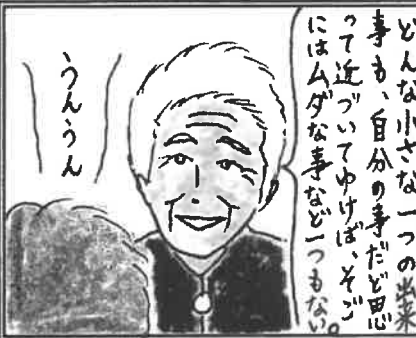 どんな小さな一つの出来
事も、自分の事だと思
って近づいてゆけば、そこ
にはムダな事など一つもない。
うんうん